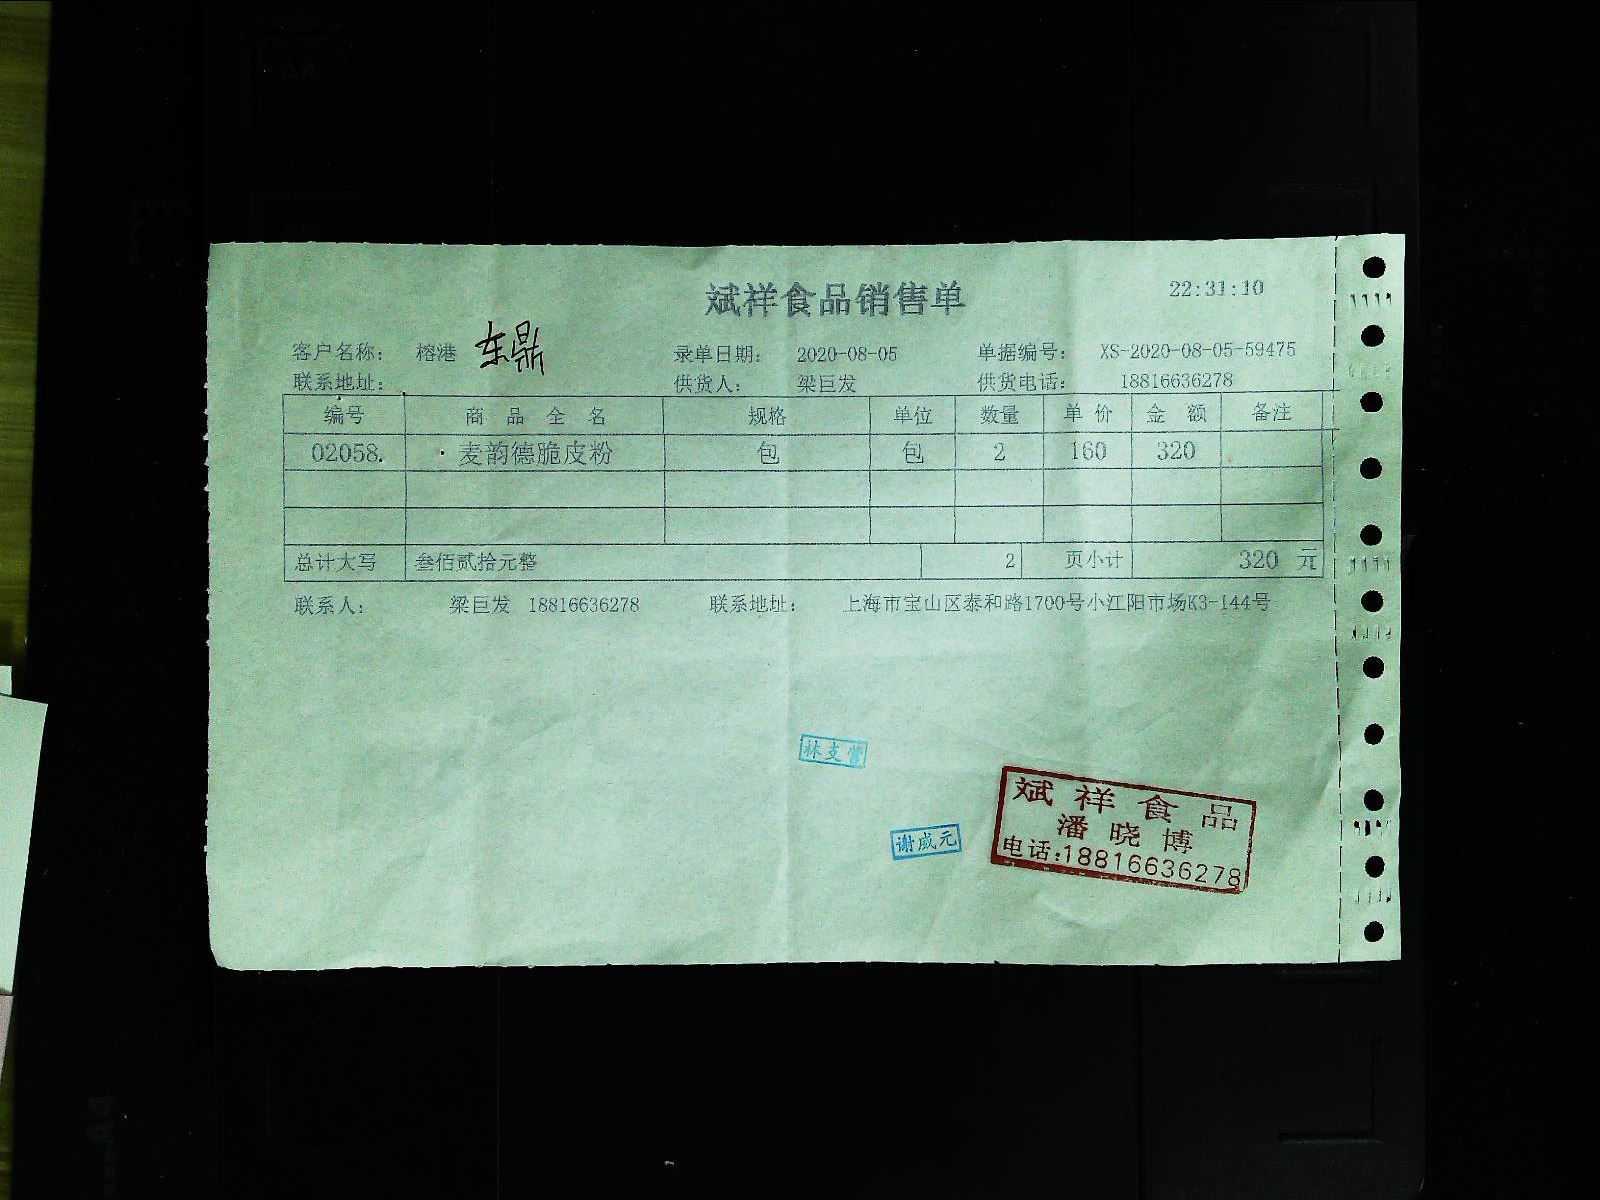 斌祥食品销售单 22:31:10
客户名称： 榕港 东鼎 录单日期： 2020-08-05 单据编号： XS-2020-08-05-59475
联系地址： 供货人： 梁巨发 供货电话： 18816636278
编号 商品全名 规格 单位 数量 单价 金额 备注
02058. ·麦韵德脆皮粉 包 包 2 160 320
总计大写 叁佰贰拾元整 2 页小计 320 元
联系人： 梁巨发 18816636278 联系地址： 上海市宝山区泰和路1700号小江阳市场K3-144号
林支营
谢威元
斌祥食品
潘晓博
电话:18816636278